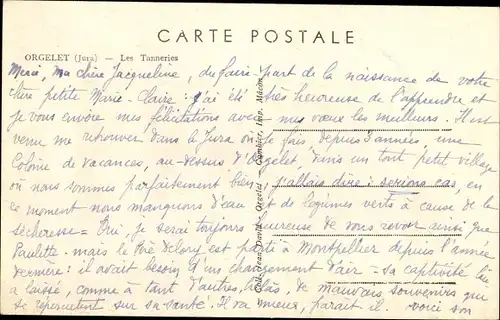 CARTE POSTALE
ORGELET (Jura) — Les Tanneries
Merci, ma chère Jacqueline, du faire-part de la naissance de votre
chère petite Marie-Claire : j'ai été très heureuse de l'apprendre et
je vous envoie mes félicitations avec mes vœux les meilleurs. Il est
venu me retrouver dans le Jura où je fais depuis 3 années une
Colonie de vacances, au-dessus d'Orgelet, dans un tout petit village
où nous sommes parfaitement bien, j'allais dire : serions car, en
ce moment nous manquons d'eau et de légumes verts à cause de la
sécheresse — Oui, je serai toujours heureuse de vous revoir ainsi que
Paulette - mais le Père Delory est parti à Montpellier depuis l'année
dernière : il avait besoin d'un changement d'air — sa captivité lui
a laissé, comme à tant d'autres, hélas, de mauvais souvenirs qui
se répercutent sur sa santé. Il va mieux, paraît il. voici son
Orgelet Combier, Imp. Mâcon